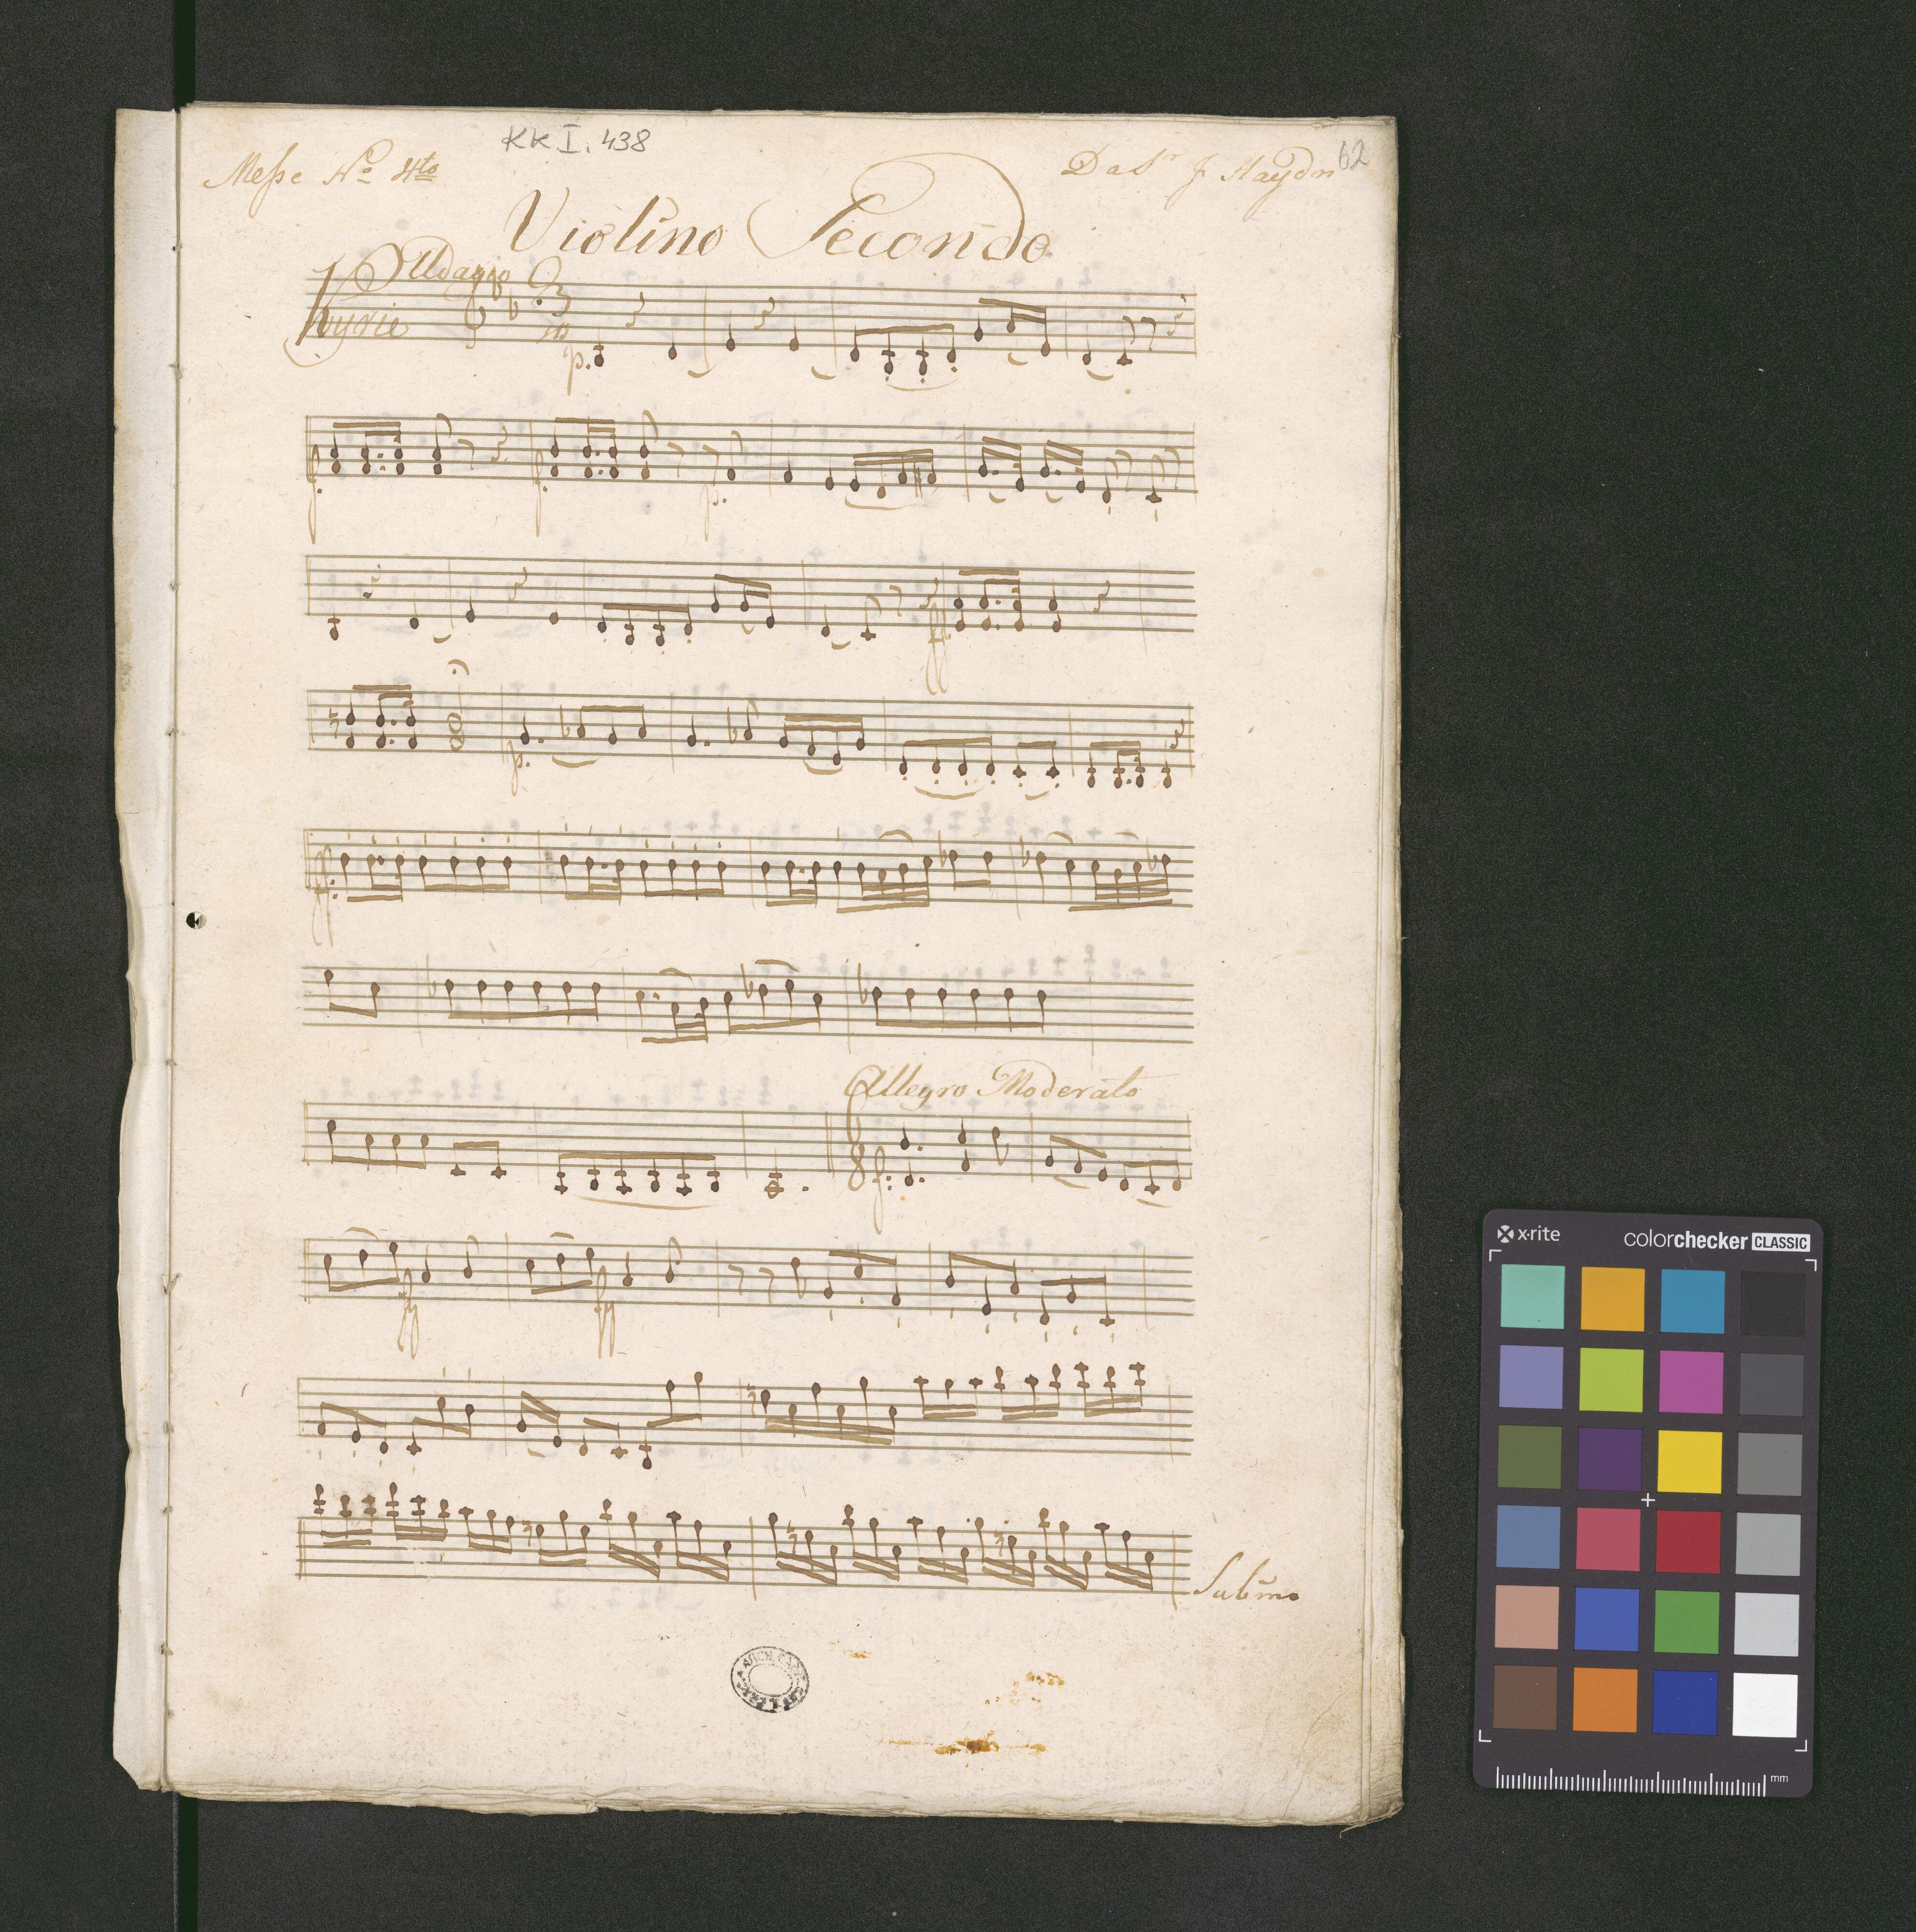 KK I. 438
Messe No 4to
Da Sr J Haydn 62
Violino Secondo
Adagio
Kyrie
p.
f. f. p.
ff.
p.
ff.
Allegro Moderato
f:
x·rite colorchecker CLASSIC
mm